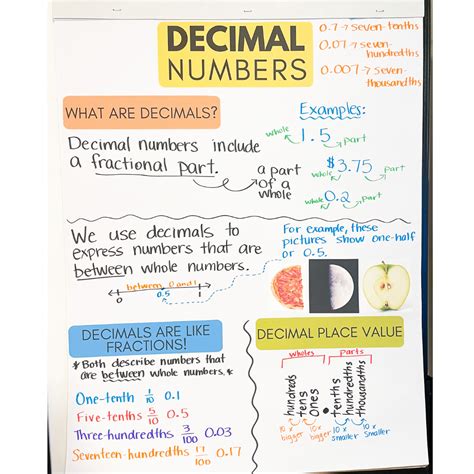 DECIMAL
NUMBERS
0.7 → seven-tenths
0.07 → seven-
hundredths
0.007 → seven-
thousandths
WHAT ARE DECIMALS?
Decimal numbers include
a fractional part.
a part
of a
whole
Examples:
whole 1.5 part
$3.75
whole part
whole 0.2 part
We use decimals to
express numbers that are
between whole numbers.
between 0 and 1
0 0.5 1
For example, these
pictures show one-half
or 0.5.
DECIMALS ARE LIKE
FRACTIONS!
*Both describe numbers that
are between whole numbers.*
One-tenth 1/10 0.1
Five-tenths 5/10 0.5
Three-hundredths 3/100 0.03
Seventeen-hundredths 17/100 0.17
DECIMAL PLACE VALUE
wholes parts
hundreds
tens
ones
.
tenths
hundredths
thousandths
10x 10x 10x 10x
bigger bigger smaller smaller